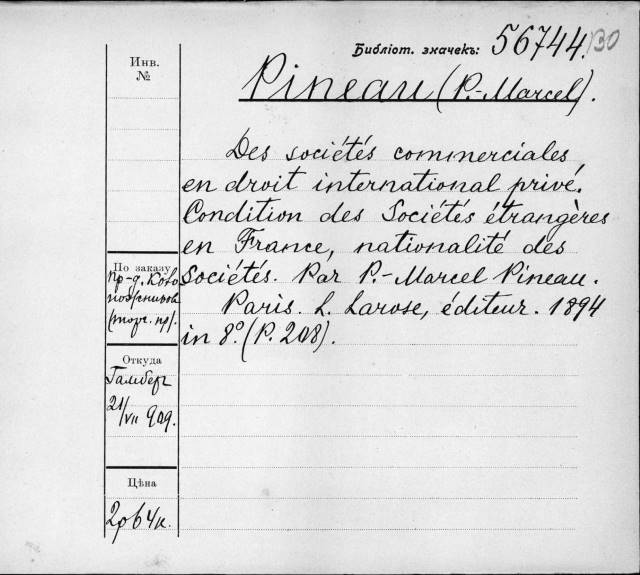 Библіот. значекъ: 56744. 130
Инв.
№
Pineau (P.-Marcel).
Des sociétés commerciales,
en droit international privé.
Condition des Sociétés étrangères
en France, nationalité des
Sociétés. Par P.-Marcel Pineau.
Paris. L. Larose, éditeur. 1894
in 8º. (P. 208).
По заказу
пр-д.
(торг. пр).
Откуда
Гамбер
21/VII 909.
Цѣна
2р 64к.